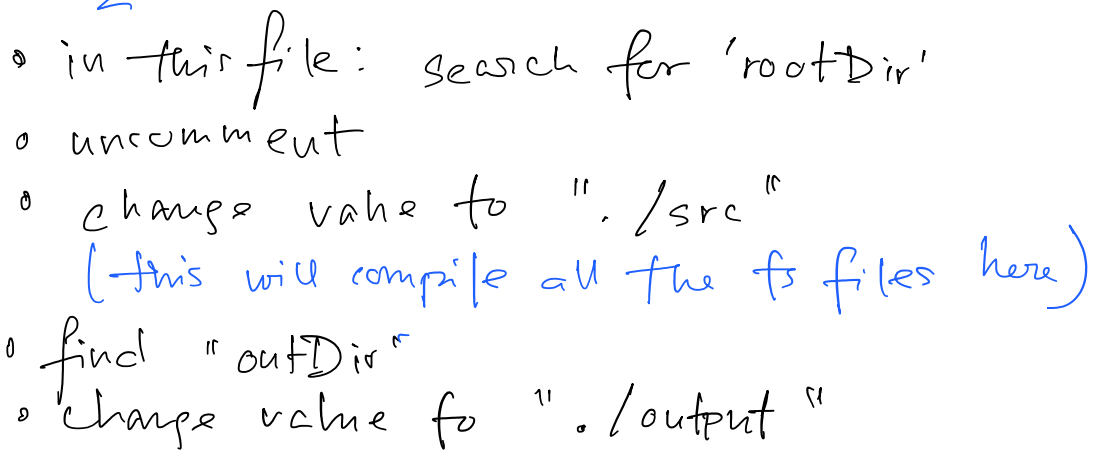 • in this file: search for 'rootDir'
• uncomment
• change value to "./src"
(this will compile all the ts files here)
• find "outDir"
• change value to "./output"